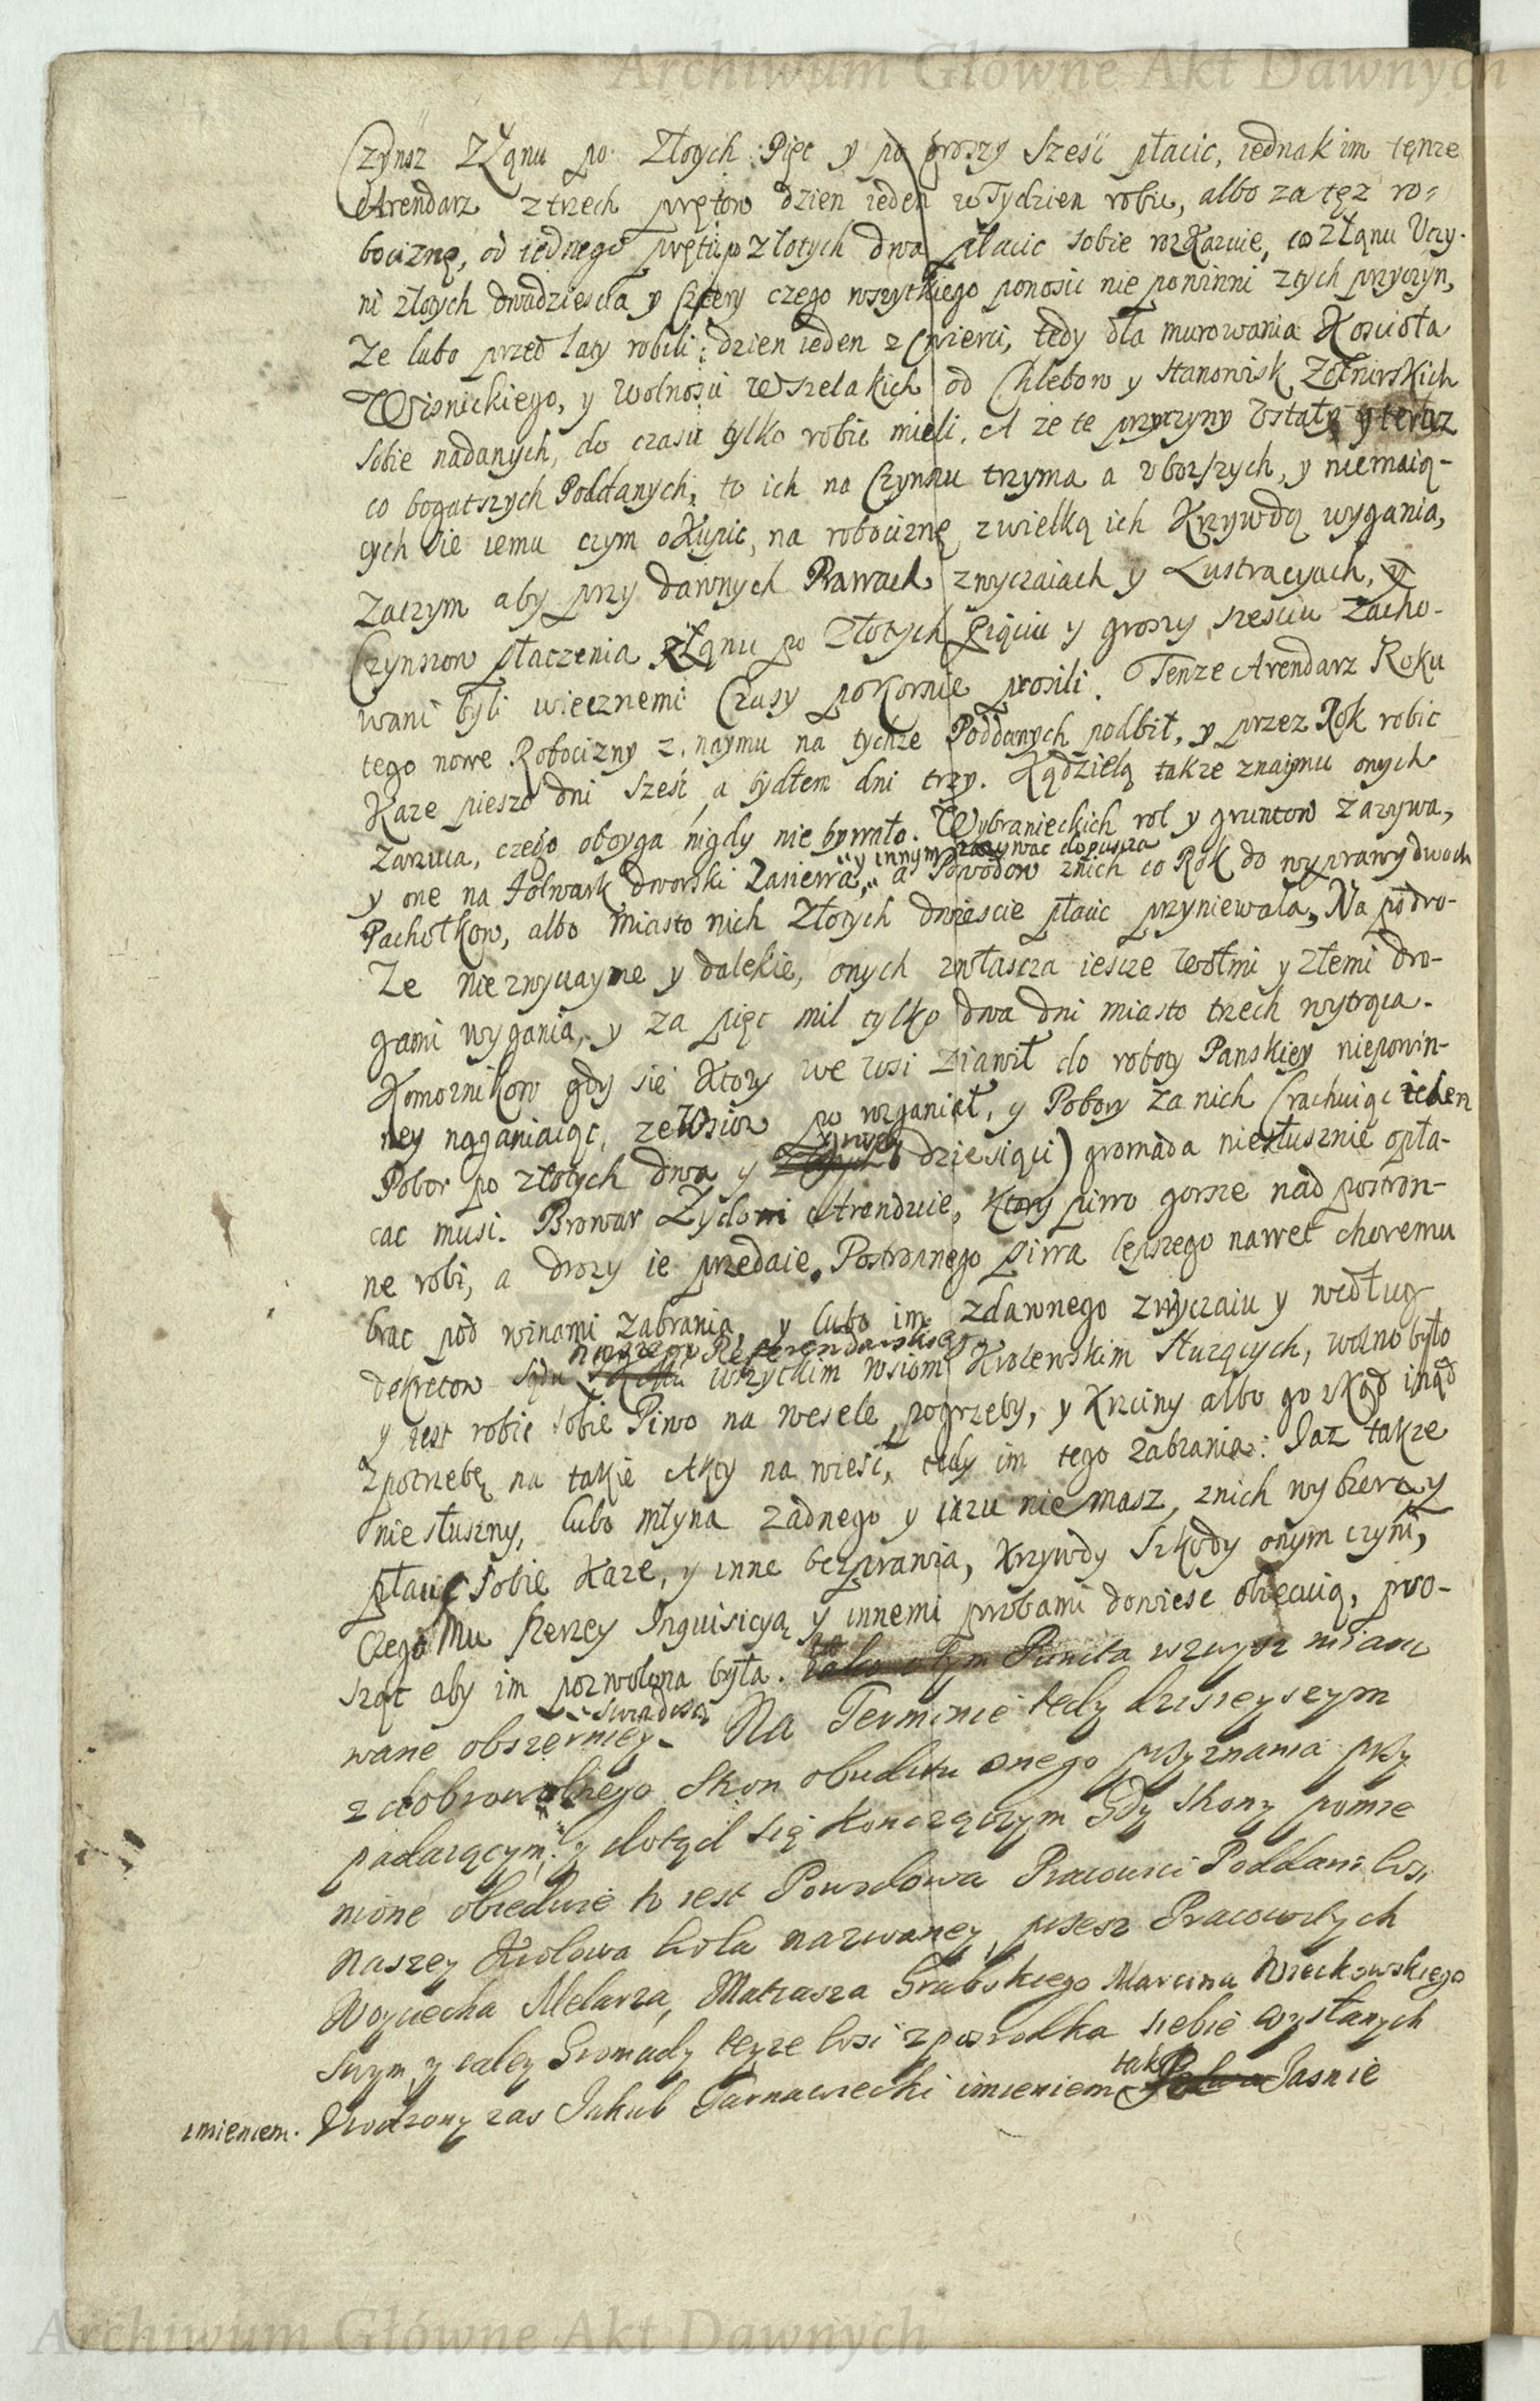 Archiwum Główne Akt Dawnych
Czynsz z Łąnu po Złotych Pięc y po groszy sześć płacic, iednak im tęnze
Arendarz z trzech prętow dzien ieden w Tydzien robic, albo za tęz ro=
bociznę, od iednego pręta po złotych dwa płacic sobie rozkazuie, co z Łąnu Uczy-
ni złotych dwadziescia y cztery czego wszytkiego ponosic nie powinni z tych przyczyn,
Ze lubo przed laty robili dzien ieden z cwierci, tedy dla murowania Koscioła
Wisnickiego, y wolnosci wszelakich od Chlebow y stanowisk Zołnirskich
sobie nadanych, do czasu tylko robic mieli. A ze te przyczyny ustały y teraz
co bogatszych Poddanych, to ich na Czynszu trzyma a ubozszych, y niemaią-
cych sie iemu czym okupic, na robociznę z wielką ich Krzywdą wygania,
Zaczym aby przy dawnych Prawach zwyczaiach y Lustracyach, y
Czynszow płaczenia z Łąnu po Złotych Piąciu y groszy szesciu zacho-
wani byli wiecznemi Czasy pokornie prosili. Tenze Arendarz Roku
tego nowe Robocizny z naymu na tychze Poddanych podbił, y przez Rok robic
Kaze pieszo dni sześć, a bydłem dni trzy. Kądzielą takze z naymu onych
zarzuca, czego oboyga nigdy nie bywało. Wybranieckich rol y gruntow zazywa,
y innym zazywac dopuszcza
y one na folwark dworski zasiewa, a Powodow z nich co Rok do wyprawy dwoch
Pachołkow, albo miasto nich Złotych dwiescie płacic przyniewala, Na podro-
Ze niezwyczayne y dalekie, onych zwłascza iescze wołmi y złemi dro-
gami wygania, y za pięc mil tylko dwa dni miasto trzech wytrąca.
Komornikow gdy się ktory we wsi ziawił do roboty Panskiey niepowin-
ney naganiaiąc, ze wsiow po rozganiał, y Pobory za nich (rachuiąc ieden
groszy
Pobor po złotych dwa y dziesiąci) gromada niesłusznie opła-
cac musi. Browar Zydowi Arenduie, ktory piwo gorsze nad postron-
ne robi, a drozy ie przedaie. Postronnego piwa lepszego nawet choremu
brac pod winami zabrania, y lubo im z dawnego zwyczaiu y według
naszego Referendarskiego
dekretow Sądu wszytkim wsiom Krolewskim słuzących, wolno było
y iest robic sobie Piwo na wesele, pogrzeby, y Krzciny albo go zkąd inąd
z potrzebę na takie Akty na wiesc, tedy im tego zabrania. Iaz takze
niesłuszny, lubo młyna zadnego y iazu nie masz, z nich wybzerazy
płacic sobie Kaze, y inne bezprawia, Krzywdy szkody onym czyni,
Czego Mu szerzey Inquisicyą y innemi probami dowiesc obiecuią, pro-
sząc aby im pozwolona była. Puncta wzwysz miano
swiadczą
wane obszerniey. Na Terminie tedy dzisieyszym
z dobrowolnego stron obudwu onego przyznania przy
padaiącym, y dotąd się konczączym Gdy strony pomie
nione obiedwie to iest Powodowa Pracowici Poddani wsi
naszey Krolowa Wola nazwaney, przesz Pracowitych
Woyciecha Melarza, Matiasza Grabskiego Marcina Wieckowskiego
swym, y całey Gromady teyze wsi z posrodka siebie wysłanych
tak
imieniem. Urodzony zas Jakub Tarnawiecki imieniem Jasnie
Archiwum Główne Akt Dawnych